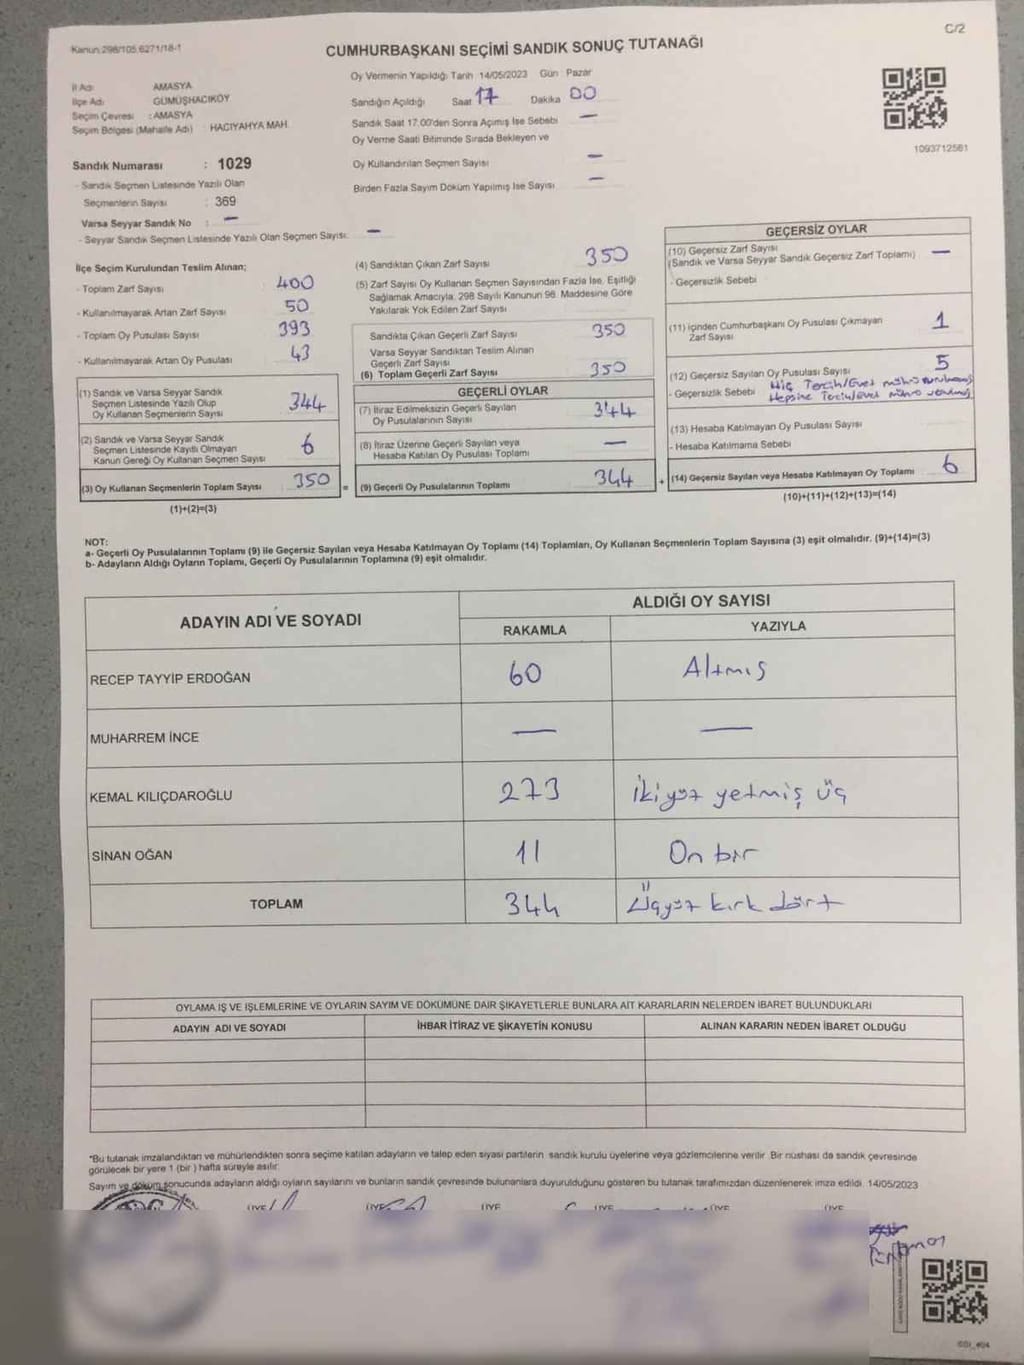 C/2
Kanun:298/105,6271/18-1
CUMHURBAŞKANI SEÇİMİ SANDIK SONUÇ TUTANAĞI
İl Adı : AMASYA
İlçe Adı : GÜMÜŞHACIKÖY
Seçim Çevresi : AMASYA
Seçim Bölgesi (Mahalle Adı) : HACIYAHYA MAH.
Oy Vermenin Yapıldığı Tarih 14/05/2023 Gün Pazar
Sandığın Açıldığı Saat 17 Dakika 00
Sandık Saat 17.00'den Sonra Açımış İse Sebebi —
Oy Verme Saati Bitiminde Sırada Bekleyen ve
Oy Kullandırılan Seçmen Sayısı —
Birden Fazla Sayım Döküm Yapılmış İse Sayısı —
1093712561
Sandık Numarası : 1029
- Sandık Seçmen Listesinde Yazılı Olan
Seçmenlerin Sayısı : 369
Varsa Seyyar Sandık No : —
- Seyyar Sandık Seçmen Listesinde Yazılı Olan Seçmen Sayısı: —
İlçe Seçim Kurulundan Teslim Alınan;
- Toplam Zarf Sayısı 400
- Kullanılmayarak Artan Zarf Sayısı 50
- Toplam Oy Pusulası Sayısı 393
- Kullanılmayarak Artan Oy Pusulası 43
(1) Sandık ve Varsa Seyyar Sandık
Seçmen Listesinde Yazılı Olup
Oy Kullanan Seçmenlerin Sayısı 344
(2) Sandık ve Varsa Seyyar Sandık
Seçmen Listesinde Kayıtlı Olmayan
Kanun Gereği Oy Kullanan Seçmen Sayısı 6
(3) Oy Kullanan Seçmenlerin Toplam Sayısı 350 =
(1)+(2)=(3)
(4) Sandıktan Çıkan Zarf Sayısı 350
(5) Zarf Sayısı Oy Kullanan Seçmen Sayısından Fazla İse, Eşitliği
Sağlamak Amacıyla, 298 Sayılı Kanunun 98. Maddesine Göre
Yakılarak Yok Edilen Zarf Sayısı
Sandıkta Çıkan Geçerli Zarf Sayısı 350
Varsa Seyyar Sandıktan Teslim Alınan
Geçerli Zarf Sayısı
(6) Toplam Geçerli Zarf Sayısı 350
GEÇERLİ OYLAR
(7) İtiraz Edilmeksizin Geçerli Sayılan
Oy Pusulalarının Sayısı 344
(8) İtiraz Üzerine Geçerli Sayılan veya
Hesaba Katılan Oy Pusulası Toplamı —
(9) Geçerli Oy Pusulalarının Toplamı 344 +
GEÇERSİZ OYLAR
(10) Geçersiz Zarf Sayısı
(Sandık ve Varsa Seyyar Sandık Geçersiz Zarf Toplamı) —
- Geçersizlik Sebebi
(11) İçinden Cumhurbaşkanı Oy Pusulası Çıkmayan
Zarf Sayısı 1
(12) Geçersiz Sayılan Oy Pusulası Sayısı 5
- Geçersizlik Sebebi Hiç Tercih/Evet mührü vurulmamış
Hepsine Tercih/Evet mührü
(13) Hesaba Katılmayan Oy Pusulası Sayısı
- Hesaba Katılmama Sebebi
(14) Geçersiz Sayılan veya Hesaba Katılmayan Oy Toplamı 6
(10)+(11)+(12)+(13)=(14)
NOT:
a- Geçerli Oy Pusulalarının Toplamı (9) ile Geçersiz Sayılan veya Hesaba Katılmayan Oy Toplamı (14) Toplamları, Oy Kullanan Seçmenlerin Toplam Sayısına (3) eşit olmalıdır. (9)+(14)=(3)
b- Adayların Aldığı Oyların Toplamı, Geçerli Oy Pusulalarının Toplamına (9) eşit olmalıdır.
ADAYIN ADI VE SOYADI
ALDIĞI OY SAYISI
RAKAMLA YAZIYLA
RECEP TAYYİP ERDOĞAN 60 Altmış
MUHARREM İNCE — —
KEMAL KILIÇDAROĞLU 273 İkiyüz yetmiş üç
SİNAN OĞAN 11 On bir
TOPLAM 344 Üçyüz kırk dört
OYLAMA İŞ VE İŞLEMLERİNE VE OYLARIN SAYIM VE DÖKÜMÜNE DAİR ŞİKAYETLERLE BUNLARA AİT KARARLARIN NELERDEN İBARET BULUNDUKLARI
ADAYIN ADI VE SOYADI İHBAR İTİRAZ VE ŞİKAYETİN KONUSU ALINAN KARARIN NEDEN İBARET OLDUĞU
*Bu tutanak imzalandıktan ve mühürlendikten sonra seçime katılan adayların ve talep eden siyasi partilerin sandık kurulu üyelerine veya gözlemcilerine verilir. Bir nüshası da sandık çevresinde
görülecek bir yere 1 (bir) hafta süreyle asılır.
Sayım ve döküm sonucunda adayların aldığı oyların sayılarını ve bunların sandık çevresinde bulunanlara duyurulduğunu gösteren bu tutanak tarafımızdan düzenlenerek imza edildi. 14/05/2023
ÜYE ÜYE ÜYE ÜYE ÜYE ÜYE